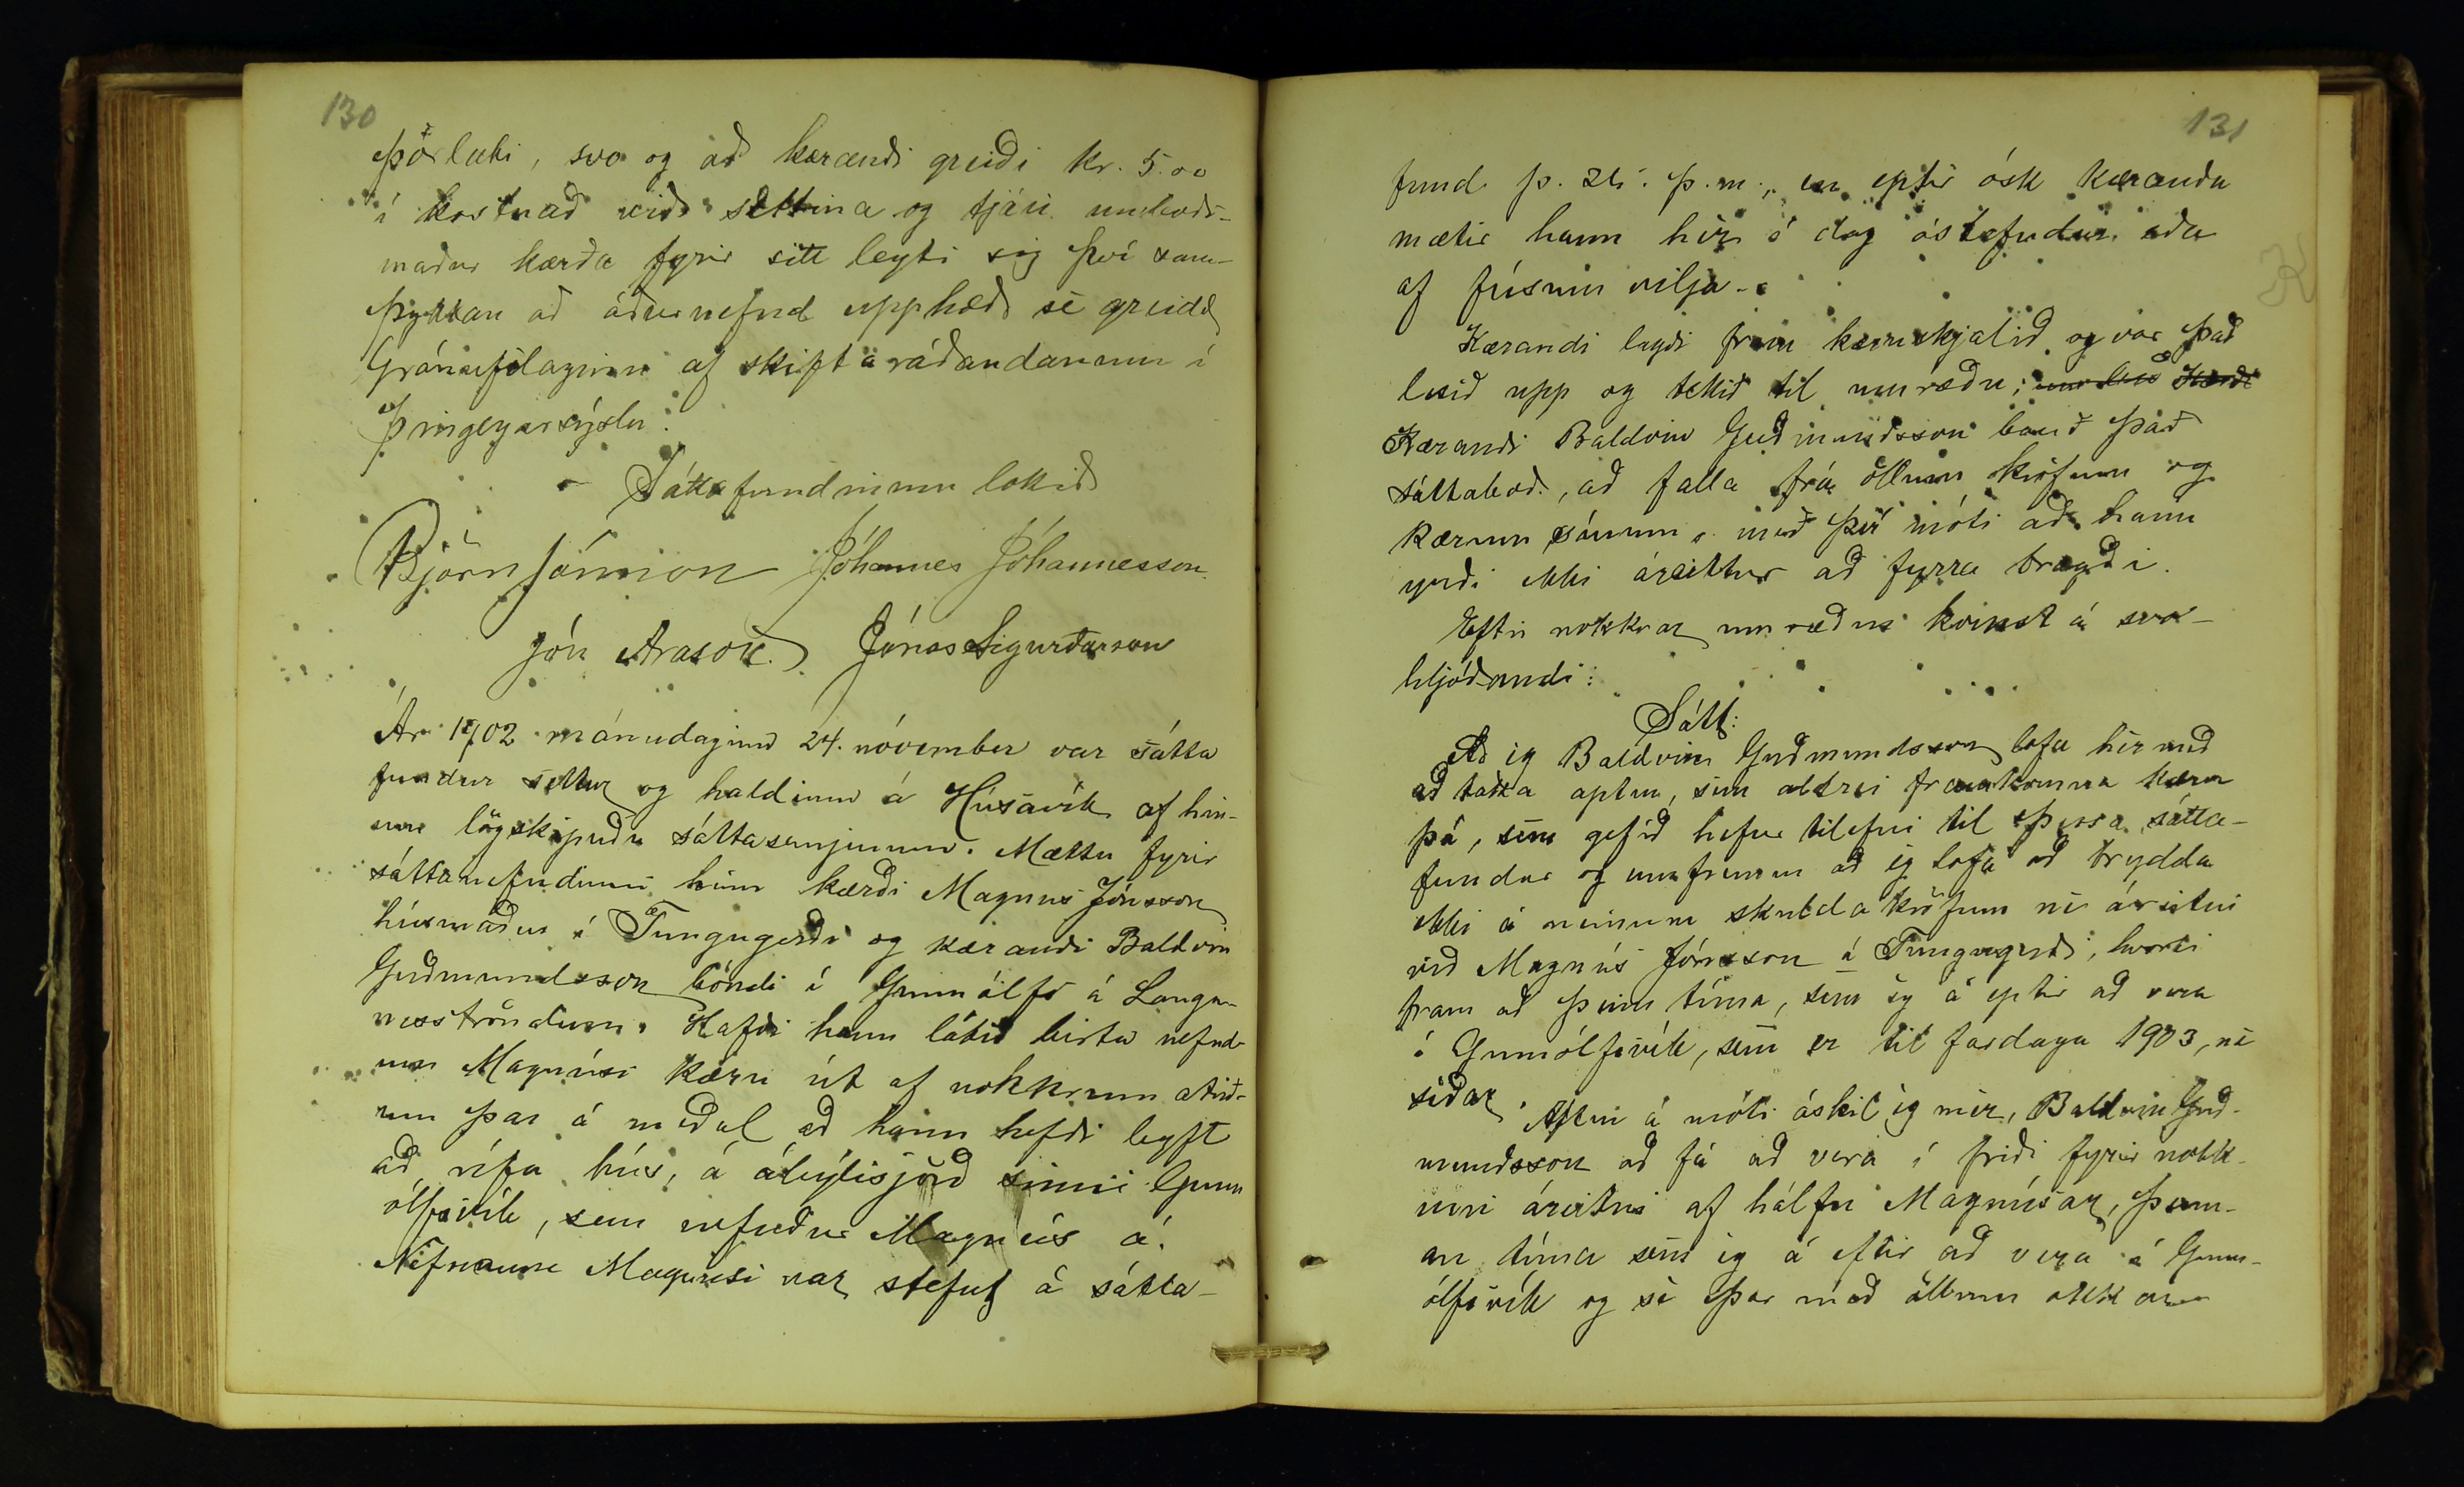 130
Þorláki, svo og að kærandi greiði kr. 5.00
í kostnað við sættina og tjáir umboðs-
maður kærða fyrir sitt leyti sig því sam-
þykkan að áðurnefnd upphæð sé greidd
Gránufélaginu af skiftaráðandanum í
Þingeyarsýslu.
Sáttafundinum lokið
Björn Jónsson Jóhannes Jóhannesson
Jón Arason. Jónas Sigurðarson
Ár 1902 mánudaginn 24. nóvember var sátta
fundur settur og haldinn á Húsavík af hin-
um lögskipuðu sáttasemjurum. Mættu fyrir
sáttanefndinni hinn kærði Magnús Jónsson
húsmaður í Tungugerði og kærandi Baldvin
Guðmundsson bóndi í Gunnólfs á Langa-
nesströndum. Hafði hann látið birta nefnd-
um Magnúsi kæru út af nokkrum atrið-
um þar á meðal að hann hefði leyft
að rífa hús, á ábýlisjörð sinni Gunn
ólfsvík, sem nefndur Magnús á.
Nefndum Magnúsi var stefnt á sátta-
131
fund þ. 26. þ.m., en eptir ósk kæranda
mætir hann hér í dag óstefndur eða
af fúsum vilja.
Kærandi lagði fram kæruskjalið og var það
lesið upp og tekið til umræðu; Kærði
Kærandi Baldvin Guðmundsson bauð það
sáttaboð, að falla frá öllum kröfum og
kærum sínum, með því móti að hann
yrði ekki áreittur að fyrra bragði.
Eftir nokkrar umræður komst á svo-
hljóðandi:
Sátt:
Að eg Baldvin Guðmundsson lofa hér með
að taka aptur, sem aldrei framkomna kæru
þá, sem gefið hefur tilefni til þessa sátta-
fundar og umfremur að eg lofa að brydda
ekki á neinum skuldakröfum né áreitni
við Magnús Jónsson á Tungugerði, hvorki
fram að þeim tíma, sem eg á eptir að vera
í Gunnólfsvík, sem er til fardaga 1903, né
síðar.
Aftur á móti áskil eg mér, Baldvin Guð-
mundsson að fá að vera í friði fyrir nokk-
urri áreitni af hálfu Magnúsar, þenn-
an tíma sem eg á eftir að vera í Gunn-
ólfsvík og sé þar með öllum okkar